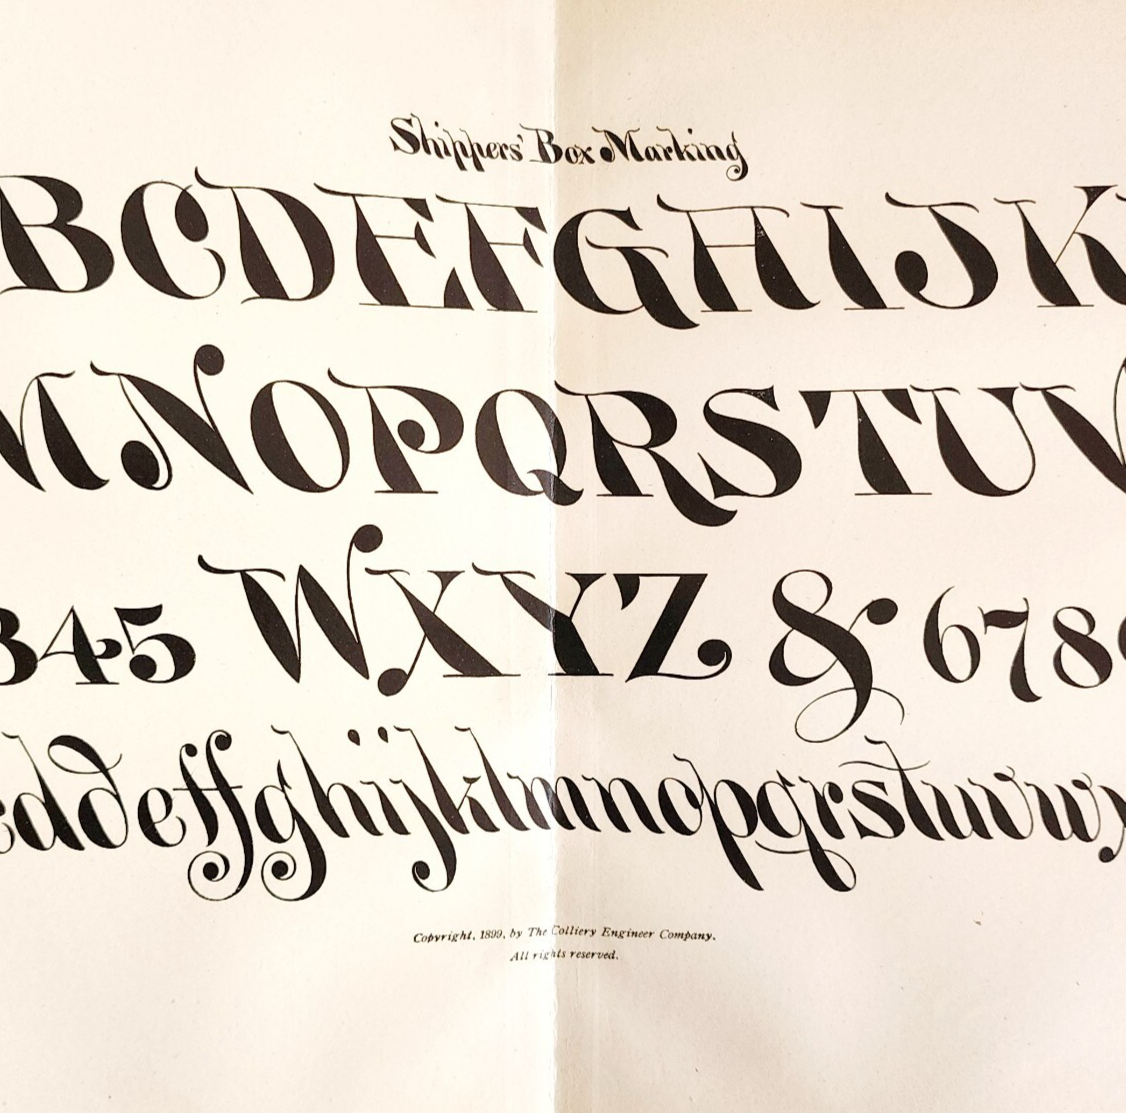 Shippers' Box Marking
BCDEFGHIJK
MNOPQRSTUV
345 WXYZ & 678
cddeffghijklmnopqrstuvwx
Copyright, 1899, by The Colliery Engineer Company.
All rights reserved.